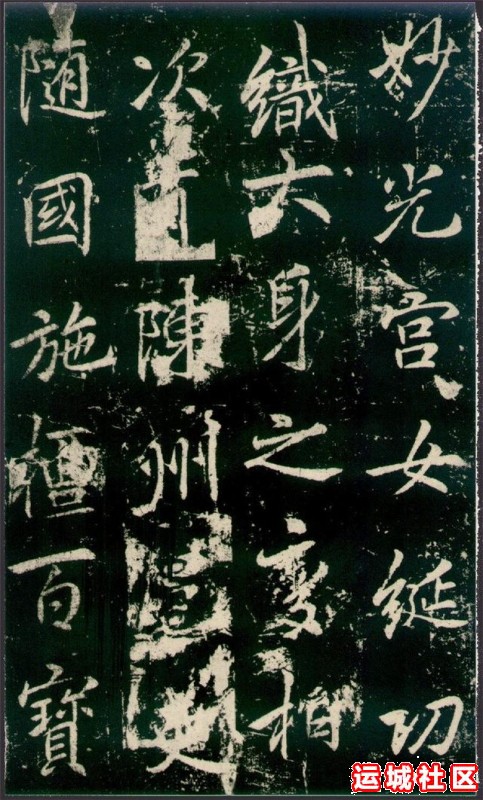 妙光宫女綖功
織大身之變相
次陳州史
隨國施檀百寶
运城社区